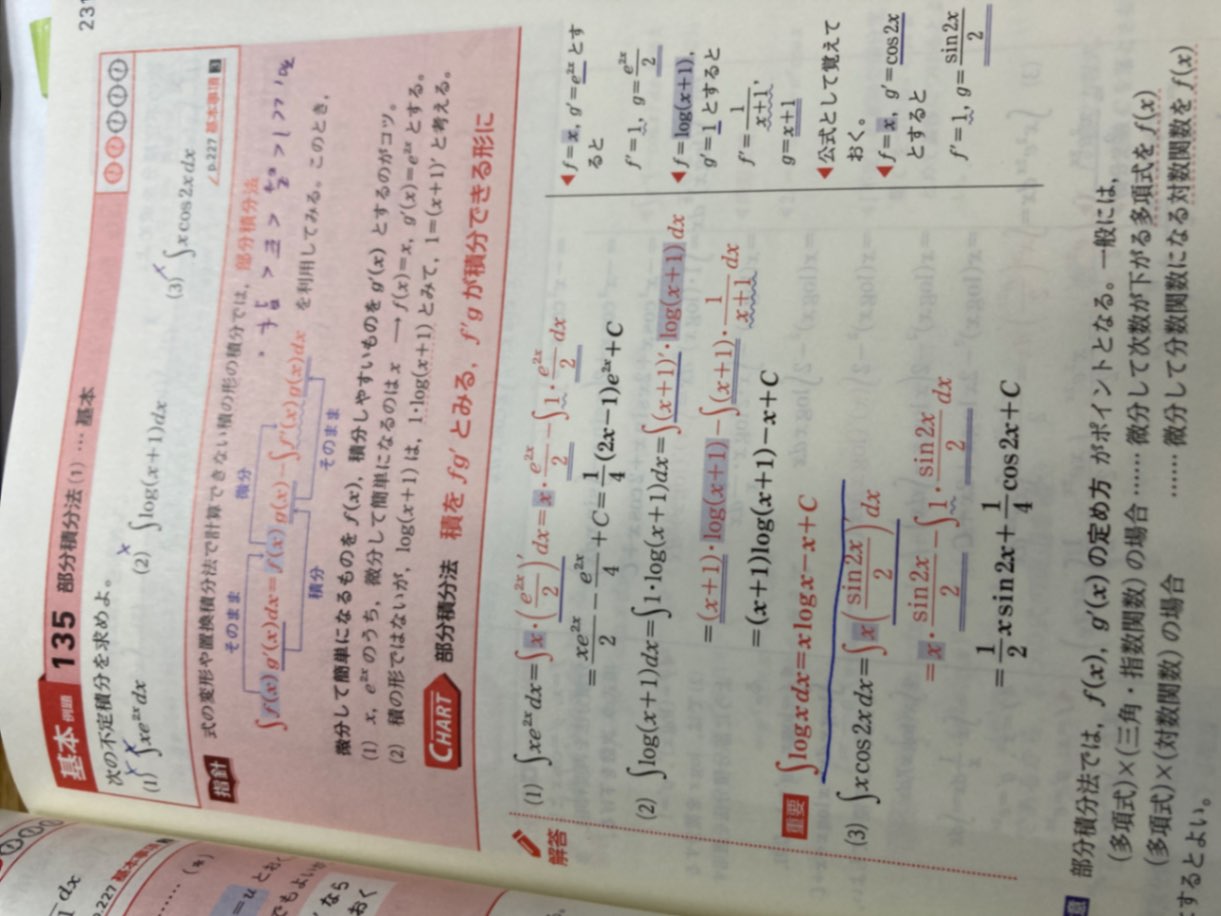 231
基本 例題 135 部分積分法(1) … 基本
①②①①①
次の不定積分を求めよ。
(1) ∫xe^{2x}dx (2) ∫log(x+1)dx (3) ∫x cos2x dx
p.227 基本事項 3
指針 式の変形や置換積分法で計算できない積の形の積分では, 部分積分法
そのまま 微分
∫f(x)g'(x)dx=f(x)g(x)−∫f'(x)g(x)dx を利用してみる。このとき,
積分 そのまま
微分して簡単になるものを f(x), 積分しやすいものを g'(x) とするのがコツ。
(1) x, e^{2x} のうち, 微分して簡単になるのは x → f(x)=x, g'(x)=e^{2x} とする。
(2) 積の形ではないが, log(x+1) は, 1・log(x+1) とみて, 1=(x+1)' と考える。
CHART 部分積分法 積を fg' とみる, f'g が積分できる形に
解答
(1) ∫xe^{2x}dx=∫x・(e^{2x}/2)'dx=x・e^{2x}/2−∫1・e^{2x}/2 dx
=xe^{2x}/2−e^{2x}/4+C=1/4(2x−1)e^{2x}+C
(2) ∫log(x+1)dx=∫1・log(x+1)dx=∫(x+1)'・log(x+1)dx
=(x+1)・log(x+1)−∫(x+1)・1/(x+1)dx
=(x+1)log(x+1)−x+C
重要 ∫log x dx=x log x−x+C
(3) ∫x cos2x dx=∫x(sin2x/2)'dx
=x・sin2x/2−∫1・sin2x/2 dx
=1/2 x sin2x+1/4 cos2x+C
◀f=x, g'=e^{2x} とす
ると
f'=1, g=e^{2x}/2
◀f=log(x+1),
g'=1 とすると
f'=1/(x+1),
g=x+1
◀公式として覚えて
おく。
◀f=x, g'=cos2x
とすると
f'=1, g=sin2x/2
部分積分法では, f(x), g'(x) の定め方 がポイントとなる。一般には,
(多項式)×(三角・指数関数) の場合 …… 微分して次数が下がる多項式を f(x)
(多項式)×(対数関数) の場合 …… 微分して分数関数になる対数関数を f(x)
するとよい。
dx
p.227 基本事項
……(*)
=u とおく
でもよい
なら
おく